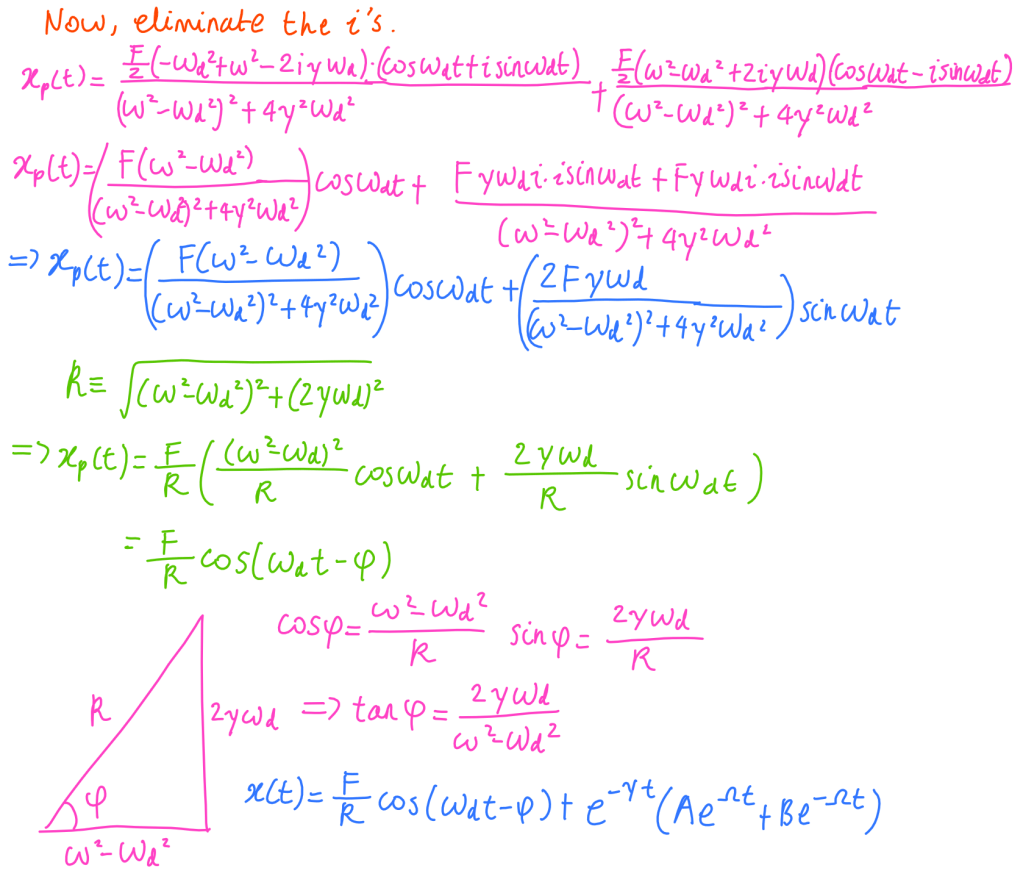 Now, eliminate the i's.
x_p(t) = \frac{\frac{F}{2}(-ω_d²+ω²-2iγω_d)·(cosω_dt+isinω_dt)}{(ω²-ω_d²)²+4γ²ω_d²} + \frac{\frac{F}{2}(ω²-ω_d²+2iγω_d)(cosω_dt-isinω_dt)}{(ω²-ω_d²)²+4γ²ω_d²}
x_p(t) = (\frac{F(ω²-ω_d²)}{(ω²-ω_d²)²+4γ²ω_d²}) cosω_dt + \frac{Fγω_di·isinω_dt+Fγω_di·isinω_dt}{(ω²-ω_d²)²+4γ²ω_d²}
=> x_p(t) = (\frac{F(ω²-ω_d²)}{(ω²-ω_d²)²+4γ²ω_d²}) cosω_dt + (\frac{2Fγω_d}{(ω²-ω_d²)²+4γ²ω_d²}) sinω_dt
R ≡ \sqrt{(ω²-ω_d²)²+(2γω_d)²}
=> x_p(t) = \frac{F}{R} (\frac{(ω²-ω_d)²}{R} cosω_dt + \frac{2γω_d}{R} sinω_dt)
= \frac{F}{R} cos(ω_dt-φ)
cosφ = \frac{ω²-ω_d²}{R} sinφ = \frac{2γω_d}{R}
R
2γω_d => tanφ = \frac{2γω_d}{ω²-ω_d²}
φ
x(t) = \frac{F}{R} cos(ω_dt-φ) + e^{-γt}(Ae^{Ωt}+Be^{-Ωt})
ω²-ω_d²